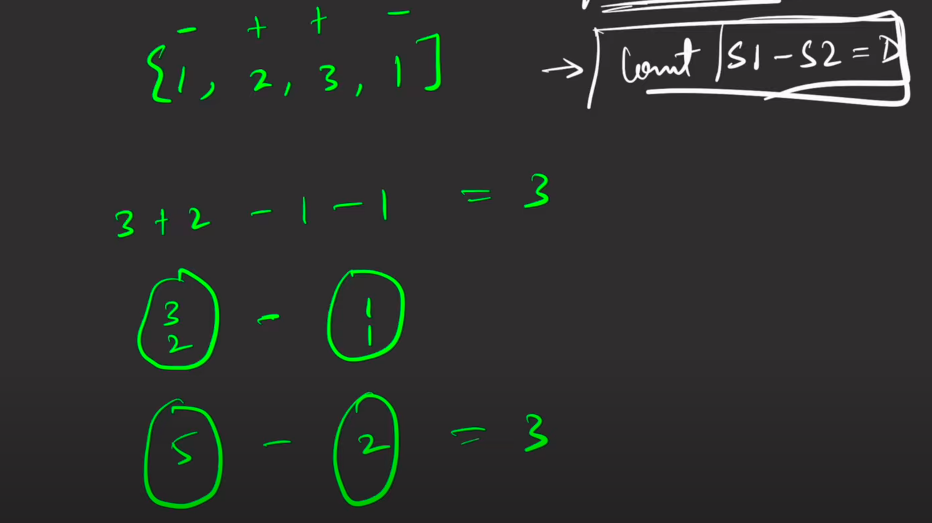 - + + -
{1, 2, 3, 1]
→ Count | S1 - S2 = D
3 + 2 - 1 - 1 = 3
3 - 1
2 1
5 - 2 = 3